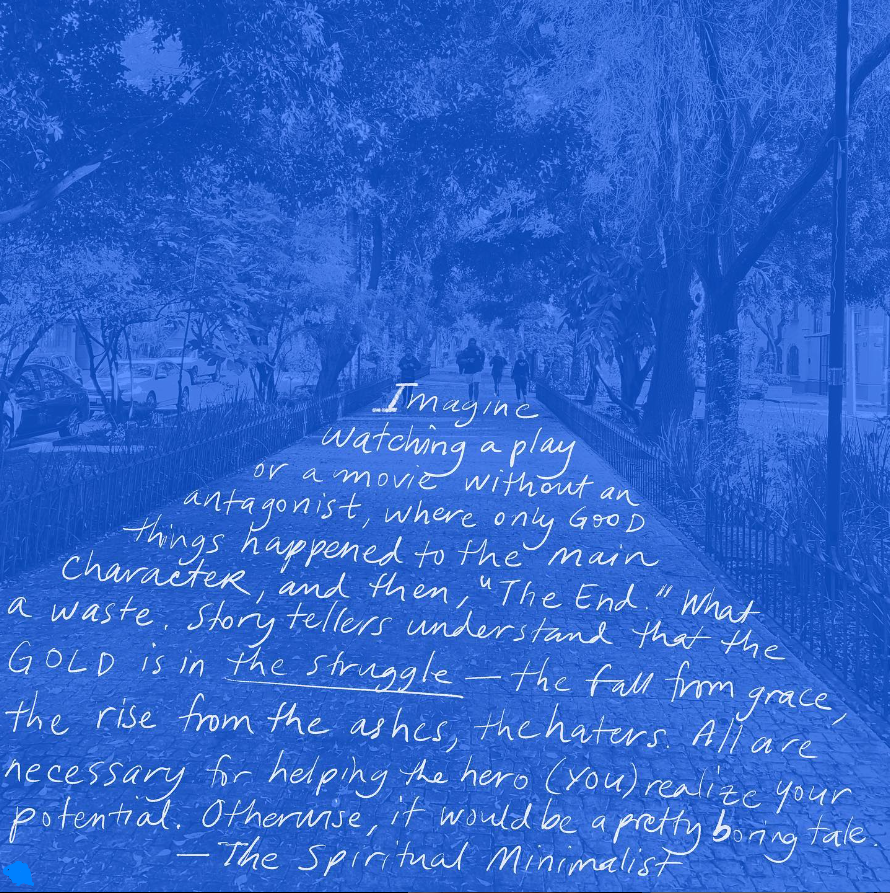 Imagine
watching a play
or a movie without an
antagonist, where only GOOD
things happened to the main
character, and then, "The End." What
a waste. Storytellers understand that the
GOLD is in the struggle — the fall from grace,
the rise from the ashes, the haters. All are
necessary for helping the hero (YOU) realize your
potential. Otherwise, it would be a pretty boring tale.
— The Spiritual Minimalist